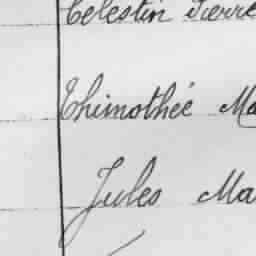 Célestin Pierre
Thimothée Ma
Jules Ma